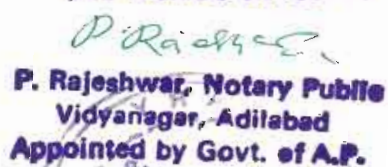 P. Rajeshwar, Notary Public
Vidyanagar, Adilabad
Appointed by Govt. of A.P.